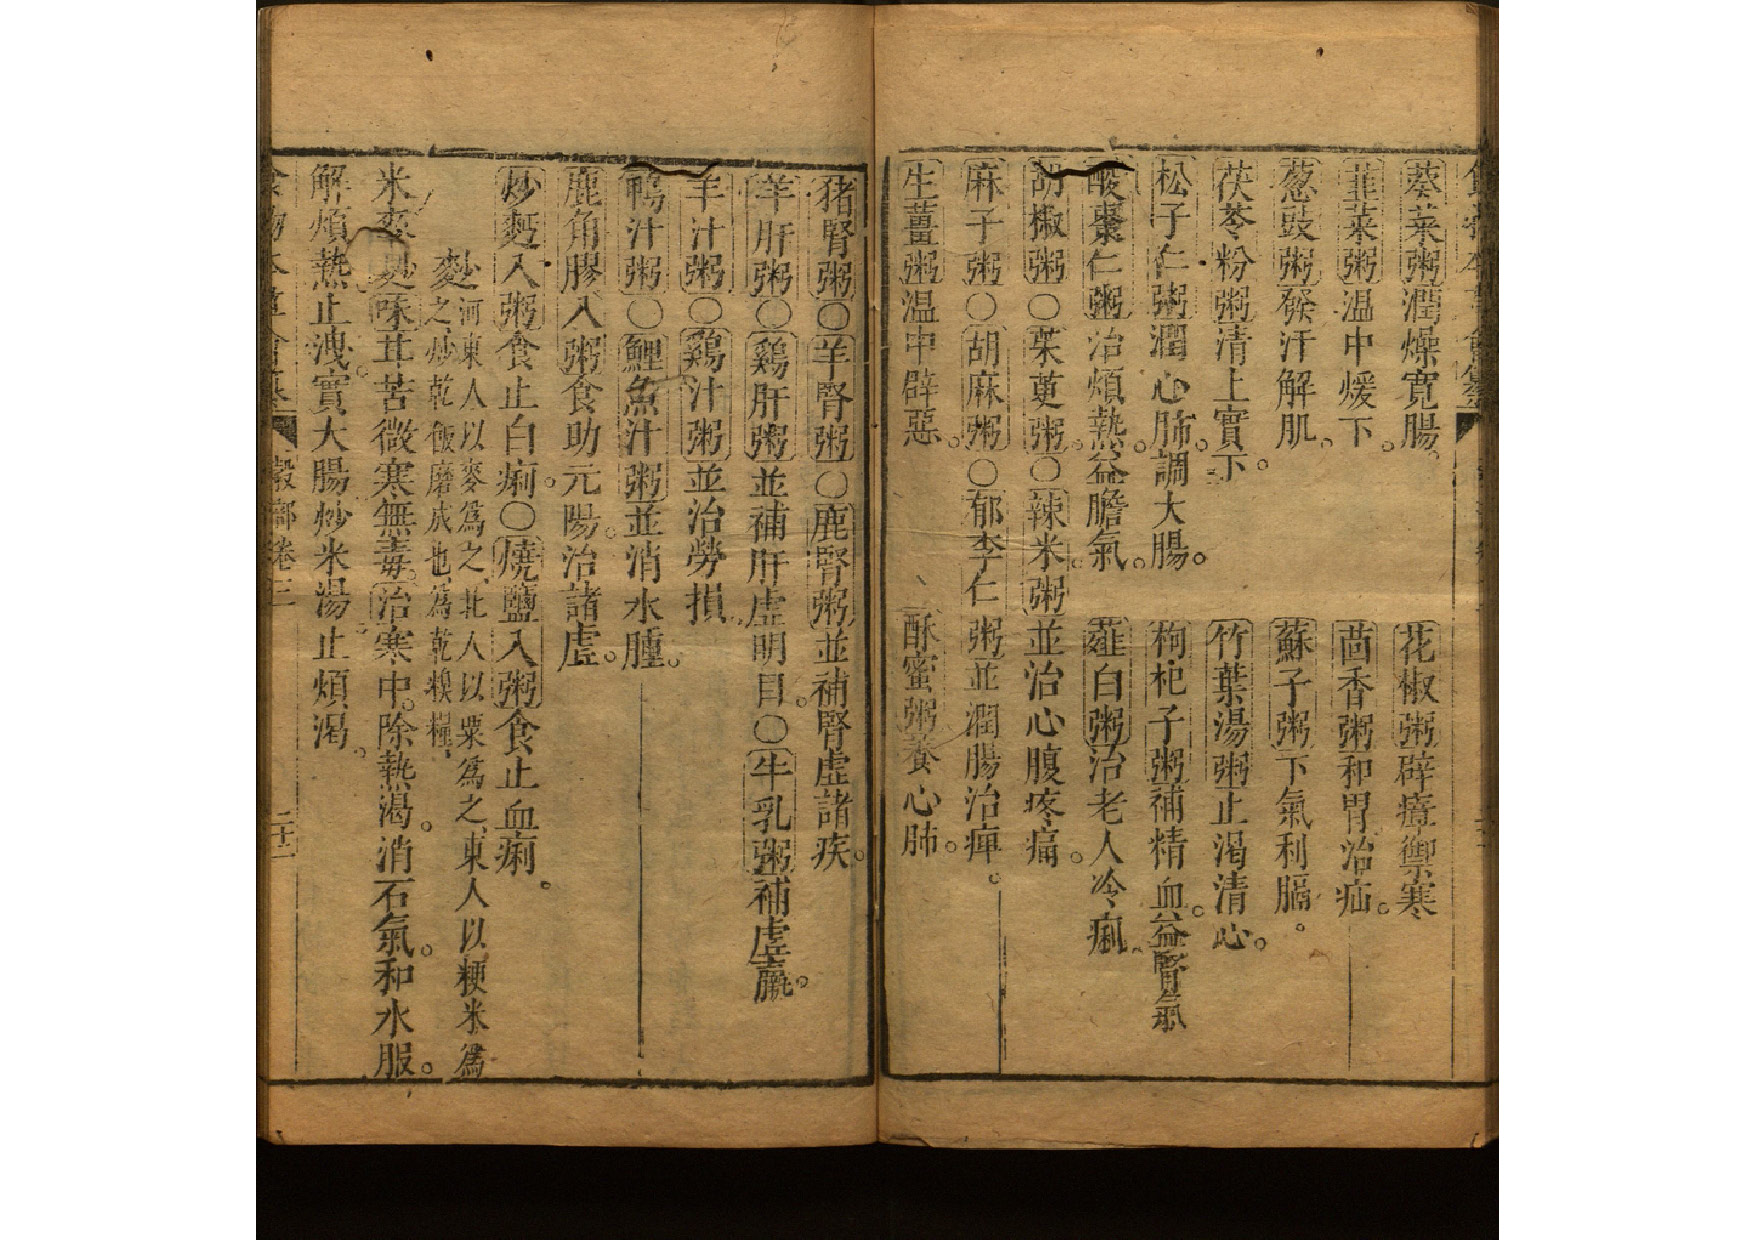 菾菜粥潤燥寬腸 花椒粥辟瘴禦寒
韮菜粥温中煖下 茴香粥和胃治疝
葱豉粥發汗解肌 蘇子粥下氣利膈
茯苓粉粥清上實下 竹葉湯粥止渴清心
松子仁粥潤心肺調大腸 枸杞子粥補精血益腎氣
酸棗仁粥治煩熱益膽氣 薤白粥治老人冷痢
胡椒粥○茱萸粥○辣米粥並治心腹疼痛
麻子粥○胡麻粥○郁李仁粥並潤腸治痺
生薑粥温中辟惡 酥蜜粥養心肺
猪腎粥○羊腎粥○鹿腎粥並補腎虛諸疾
羊肝粥○鷄肝粥並補肝虛明目○牛乳粥補虛羸
羊汁粥○鷄汁粥並治勞損
鴨汁粥○鯉魚汁粥並消水腫
鹿角膠入粥食助元陽治諸虛
炒麪入粥食止白痢○燒鹽入粥食止血痢
麨河東人以麥爲之北人以粟爲之東人以粳米爲
之炒乾飯磨成也爲乾糗糧
米麥麨味甘苦微寒無毒治寒中除熱渴消石氣和水服
解煩熱止洩實大腸炒米湯止煩渴
穀部卷二 二十一